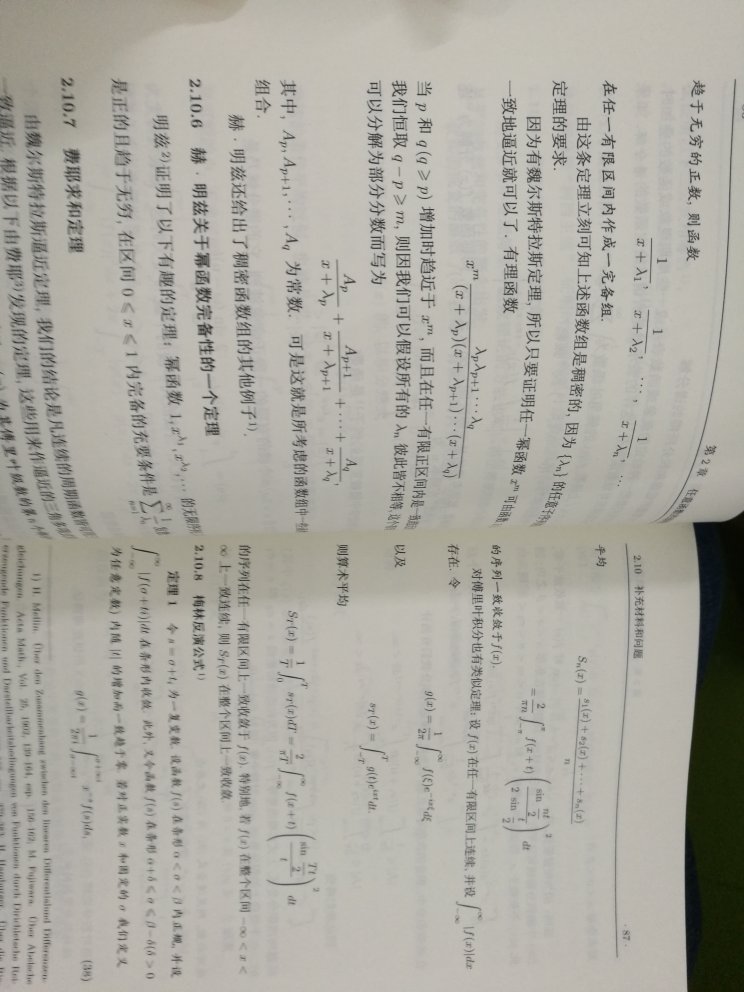 第 2 章
趋于无穷的正数, 则函数
1/(x + λ₁), 1/(x + λ₂), ⋯, 1/(x + λₙ), ⋯
在任一有限区间内作成一完备组.
由这条定理立刻可知上述函数组是稠密的, 因为 {λₙ} 的任意子
定理的要求.
因为有魏尔斯特拉斯定理, 所以只要证明任一幂函数 xᵐ 可由
一致地逼近就可以了. 有理函数
xᵐ λₚλₚ₊₁⋯λ_q / ((x + λₚ)(x + λₚ₊₁)⋯(x + λ_q))
当 p 和 q(q ⩾ p) 增加时趋近于 xᵐ, 而且在任一有限正区间内是一
我们恒取 q − p ⩾ m, 则因我们可以假设所有的 λₙ 彼此皆不相等,
可以分解为部分分数而写为
Aₚ/(x + λₚ) + Aₚ₊₁/(x + λₚ₊₁) + ⋯ + A_q/(x + λ_q)
其中, Aₚ, Aₚ₊₁, ⋯, A_q 为常数. 可是这就是所考虑的函数组中一
组合.
赫 · 明兹还给出了稠密函数组的其他例子¹⁾.
2.10.6 赫 · 明兹关于幂函数完备性的一个定理
明兹²⁾证明了以下有趣的定理: 幂函数 1, x^λ₁, x^λ₂, ⋯ 的无限序列
是正的且趋于无穷, 在区间 0 ⩽ x ⩽ 1 内完备的充要条件是 ∑ₙ₌₁^∞ 1/λₙ
2.10.7 费耶求和定理
由魏尔斯特拉斯逼近定理, 我们的结论是凡连续的周期函数
一致逼近. 根据以下由费耶³⁾发现的定理, 这些用来作逼近的三角
为其傅里叶级数的第 n
2.10 补充材料和问题 · 87 ·
平均
Sₙ(x) = (s₁(x) + s₂(x) + ⋯ + sₙ(x))/n
= 2/(πn) ∫_{−π}^{π} f(x + t) (sin(nt/2) / (2 sin(t/2)))² dt
的序列一致收敛于 f(x).
对傅里叶积分也有类似定理: 设 f(x) 在任一有限区间上连续, 并设 ∫_{−∞}^{∞} |f(x)|dx
存在. 令
g(x) = 1/(2π) ∫_{−∞}^{∞} f(ξ)e^{−ixξ}dξ
以及
s_T(x) = ∫_{−T}^{T} g(t)e^{ixt}dt.
则算术平均
S_T(x) = 1/T ∫₀^T s_T(x)dT = 2/(πT) ∫_{−∞}^{∞} f(x + t) (sin(Tt/2) / t)² dt
的序列在任一有限区间上一致收敛于 f(x). 特别地, 若 f(x) 在整个区间 −∞ < x <
∞ 上一致连续, 则 S_T(x) 在整个区间上一致收敛.
2.10.8 梅林反演公式¹⁾
定理 1 令 s = σ + ti, 为一复变数. 设函数 f(s) 在条形 α < σ < β 内正规, 并设
∫_{−∞}^{∞} |f(σ + ti)|dt 在条形内收敛. 此外, 又令函数 f(s) 在条形 α + δ ⩽ σ ⩽ β − δ(δ > 0
为任意定数) 内随 |t| 的增加而一致趋于零. 若对正实数 x 和固定的 σ 我们定义
g(x) = 1/(2πi) ∫_{σ−∞i}^{σ+∞i} x^{−s} f(s)ds, (38)
1) H. Mellin. Über den Zusammenhang zwischen den linearen Differential- und Differenzen-
gleichungen. Acta Math., Vol. 25, 1902, 139-164, esp. 156-162; M. Fujiwara. Über Abelsche
erzeugende Funktionen und Darstellbarkeitsbedingungen von Funktionen durch Dirichletsche Rei-